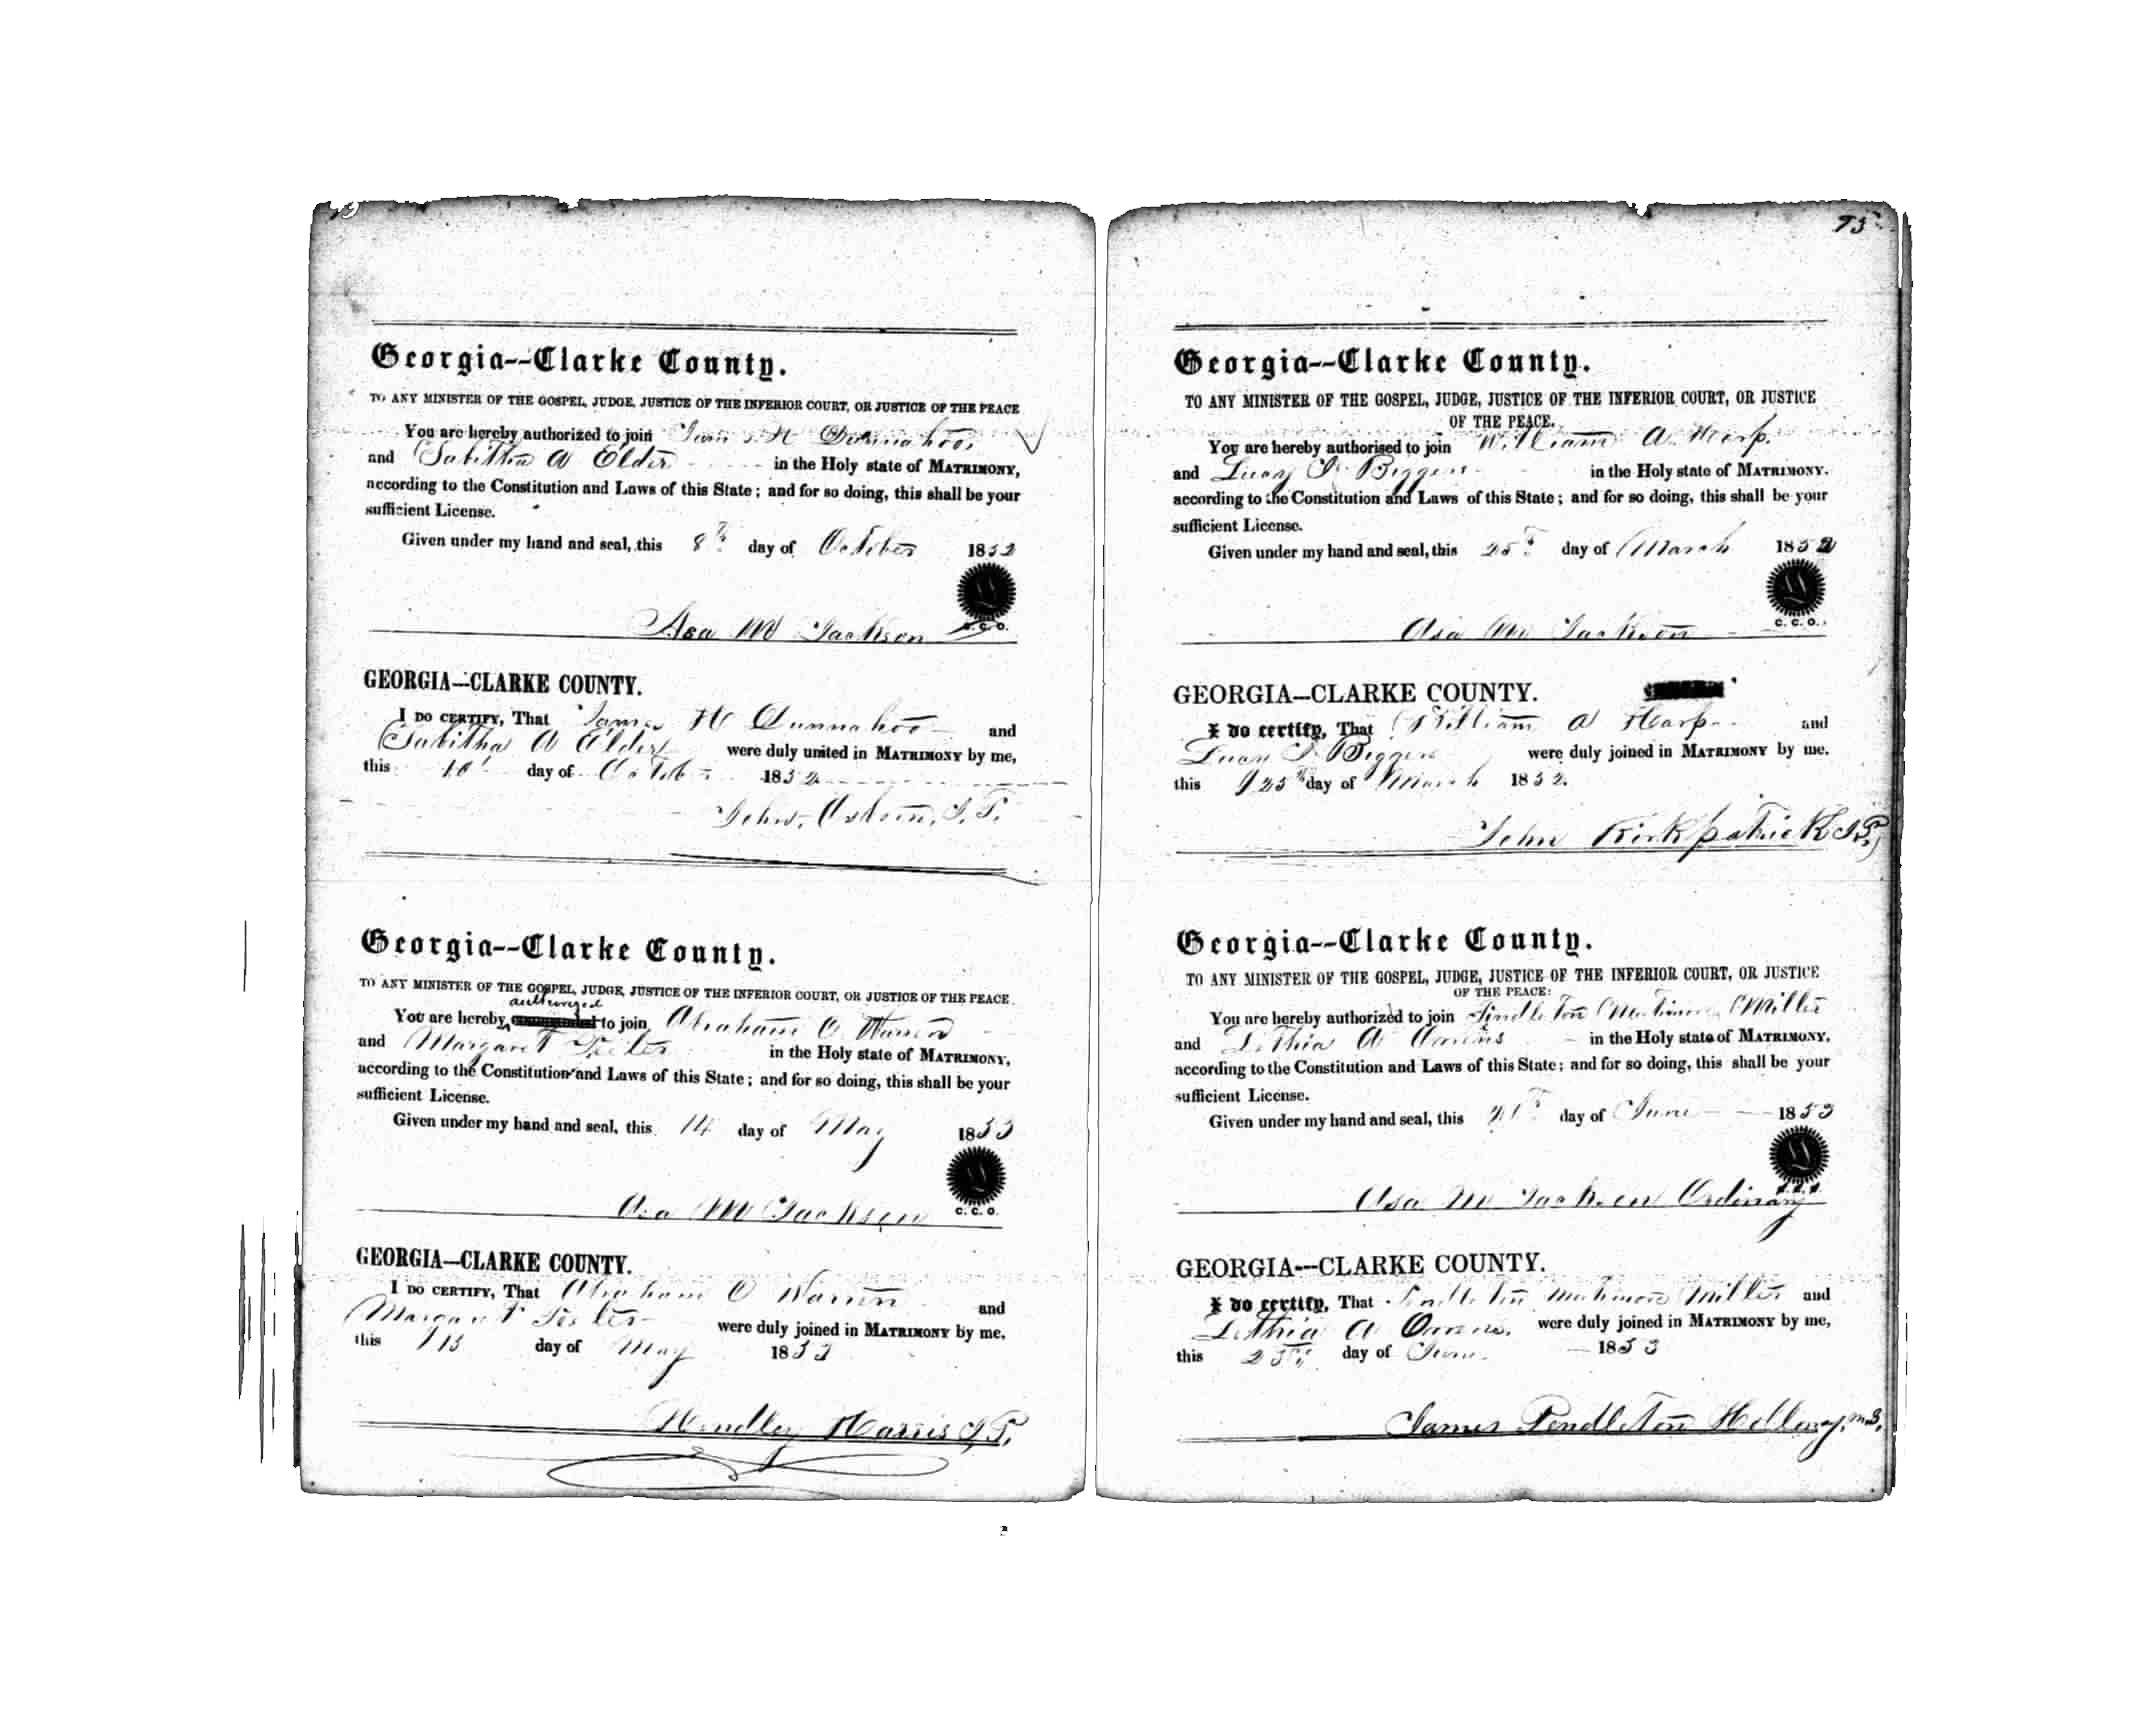 Georgia--Clarke County.
TO ANY MINISTER OF THE GOSPEL, JUDGE, JUSTICE OF THE INFERIOR COURT, OR JUSTICE OF THE PEACE
You are hereby authorized to join James H Dunnahoo,
and Tabitha A Elder in the Holy state of MATRIMONY,
according to the Constitution and Laws of this State; and for so doing, this shall be your
sufficient License.
Given under my hand and seal, this 8th day of October 1852
Asa M Jackson
C. C. O.
GEORGIA—CLARKE COUNTY.
I DO CERTIFY, That James H Dunnahoo and
Tabitha A Elder were duly united in MATRIMONY by me,
this 10 day of October 1852
John, J. P.
Georgia--Clarke County.
TO ANY MINISTER OF THE GOSPEL, JUDGE, JUSTICE OF THE INFERIOR COURT, OR JUSTICE OF THE PEACE.
authorized
You are hereby to join Abraham O Warren
and Margaret Teeter in the Holy state of MATRIMONY,
according to the Constitution and Laws of this State; and for so doing, this shall be your
sufficient License.
Given under my hand and seal, this 14 day of May 1853
Asa M Jackson
C. C. O.
GEORGIA—CLARKE COUNTY.
I DO CERTIFY, That Abraham O Warren and
Margaret were duly joined in MATRIMONY by me,
this day of May 1853
Hendley Harris J. P.
75
Georgia--Clarke County.
TO ANY MINISTER OF THE GOSPEL, JUDGE, JUSTICE OF THE INFERIOR COURT, OR JUSTICE
OF THE PEACE.
You are hereby authorised to join William A Harp.
and Lucy F Biggers in the Holy state of MATRIMONY.
according to the Constitution and Laws of this State; and for so doing, this shall be your
sufficient License.
Given under my hand and seal, this 25th day of March 1852
Asa M Jackson
C. C. O.
GEORGIA—CLARKE COUNTY.
I do certify, That William A Harp and
Lucy F Biggers were duly joined in MATRIMONY by me.
this 25th day of March 1852.
John Kirkpatrick J.P.
Georgia--Clarke County.
TO ANY MINISTER OF THE GOSPEL, JUDGE, JUSTICE OF THE INFERIOR COURT, OR JUSTICE
OF THE PEACE:
You are hereby authorized to join Pindleton Miller
and Lethia A Owens in the Holy state of MATRIMONY,
according to the Constitution and Laws of this State; and for so doing, this shall be your
sufficient License.
Given under my hand and seal, this 21st day of June 1853
C. C. O.
Asa M Jackson Ordinary
GEORGIA---CLARKE COUNTY.
I do certify, That Pendleton Miller and
Lethia A Owens. were duly joined in MATRIMONY by me,
this day of June 1853
James Pendleton